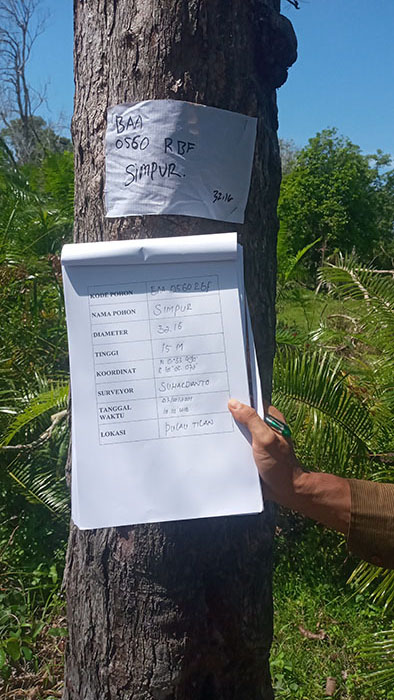 BAA
0560 RBF
SIMPUR.
32.16
KODE POHON BAA 0560 RBF
NAMA POHON SIMPUR
DIAMETER 32.16
TINGGI 15 M
KOORDINAT
SURVEYOR SUHARDIANTO
TANGGAL
WAKTU WIB
LOKASI PULAU TILAN